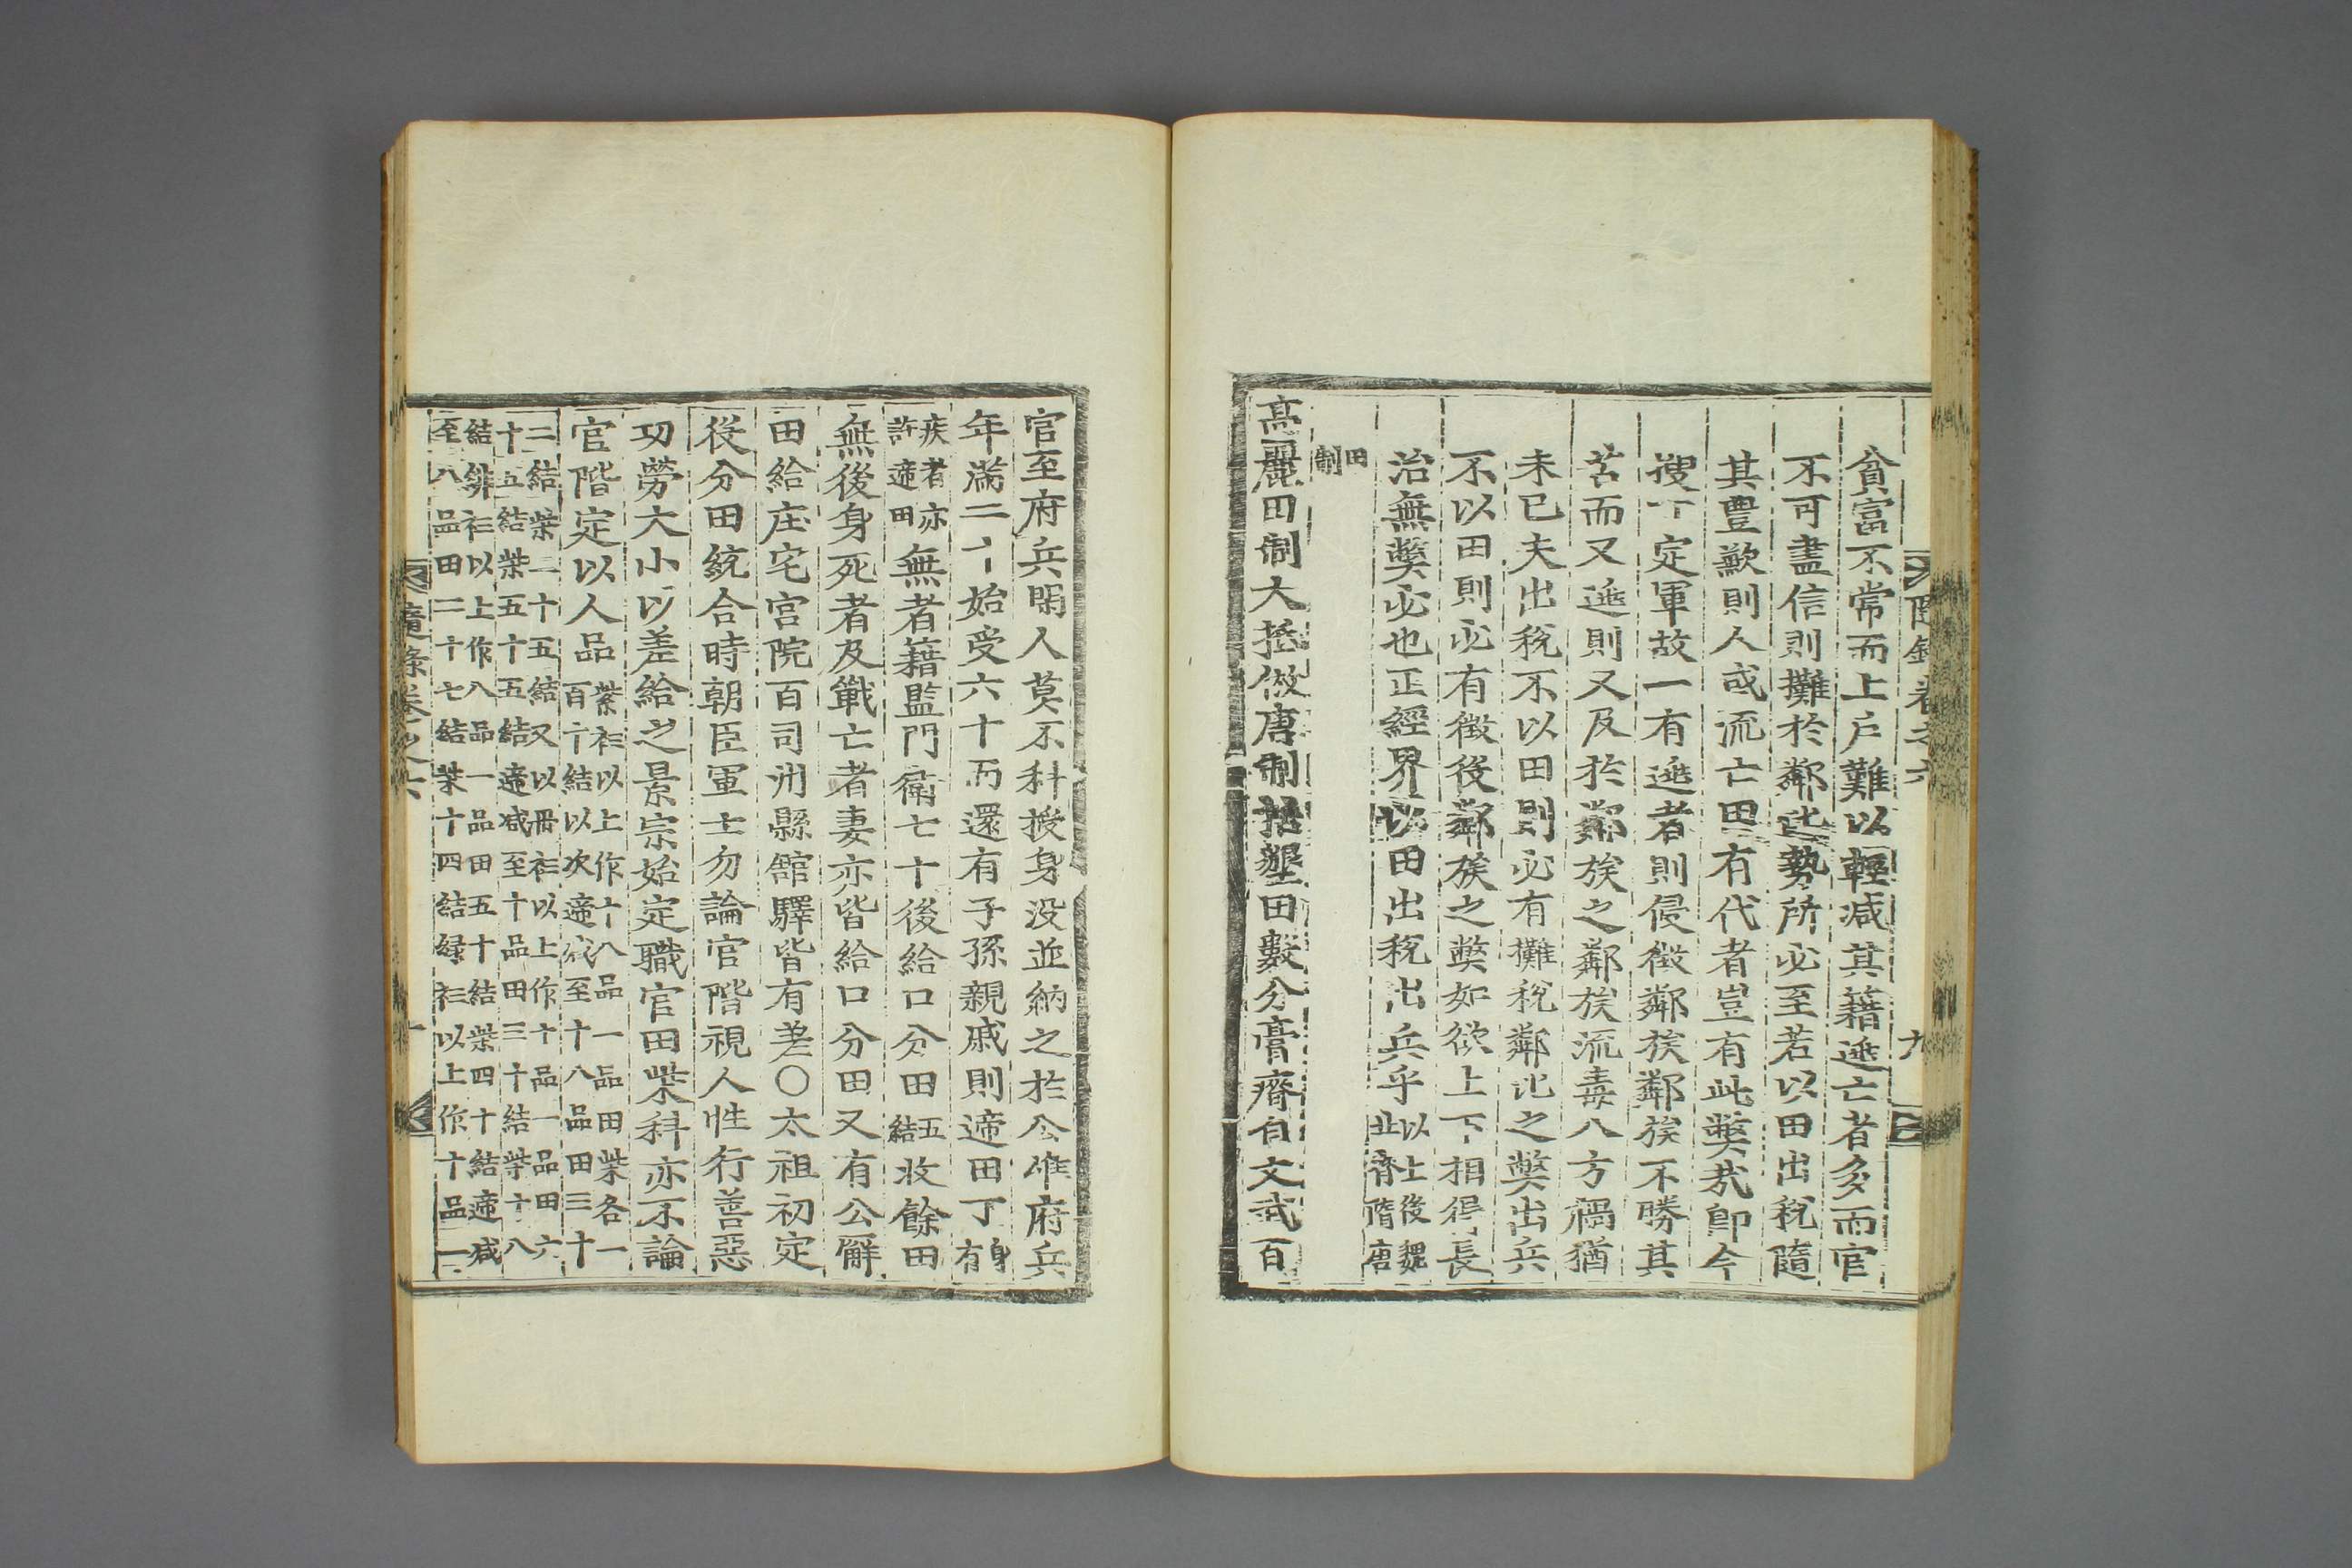 隨錄卷之六
九
貧富不常而上戶難以輕減其籍逃亡者多而官
不可盡信則攤於鄰比勢所必至若以田出稅隨
其豊歉則人或流亡田有代者豈有此弊哉即今
搜丁定軍故一有逃者則侵徵鄰族鄰族不勝其
苦而又逃則又及於鄰族之鄰族流毒八方禍猶
未已夫出稅不以田則必有攤稅鄰比之弊出兵
不以田則必有徵役鄰族之弊如欲上下相得長
治無弊必也正經界以田出稅出兵乎以上後魏北齊隋唐
田制
高麗田制大抵倣唐制括墾田數分膏瘠自文武百
官至府兵閑人莫不科授身没並納之於公唯府兵
年滿二十始受六十而還有子孫親戚則遞田丁有身
疾者亦許遞田無者籍監門衛七十後給口分田五結收餘田
無後身死者及戰亡者妻亦皆給口分田又有公廨
田給庄宅宮院百司州縣舘驛皆有差〇太祖初定
役分田統合時朝臣軍士勿論官階視人性行善惡
功勞大小以差給之景宗始定職官田柴科亦不論
官階定以人品紫衫以上作十八品一品田柴各一百十結以次遞減至十八品田三十
二結柴二十五結又以丹衫以上作十品一品田六十五結柴五十五結遞减至十品田三十結柴十八
結緋衫以上作八品一品田五十結柴四十結遞减至八品田二十七結柴十四結緑衫以上作十品一
隨錄卷之六
十